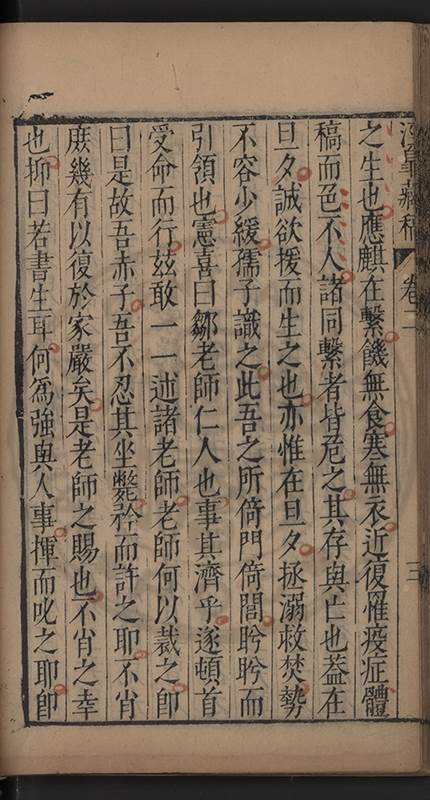 之生也應麒在繫饑無食寒無衣近復罹疫症體
稿而色不人諸同繫者皆危之其存與亡也蓋在
旦夕誠欲援而生之也亦惟在旦夕拯溺救焚勢
不容少緩孺子識之此吾之所倚門倚閭盻盻而
引領也憲喜曰鄒老師仁人也事其濟乎遂頓首
受命而行茲敢一一述諸老師老師何以裁之卽
曰是故吾赤子吾不忍其坐斃矜而許之耶不肖
庶幾有以復於家嚴矣是老師之賜也不肖之幸
也抑曰若書生耳何為強與人事揮而叱之耶卽
卷二
三